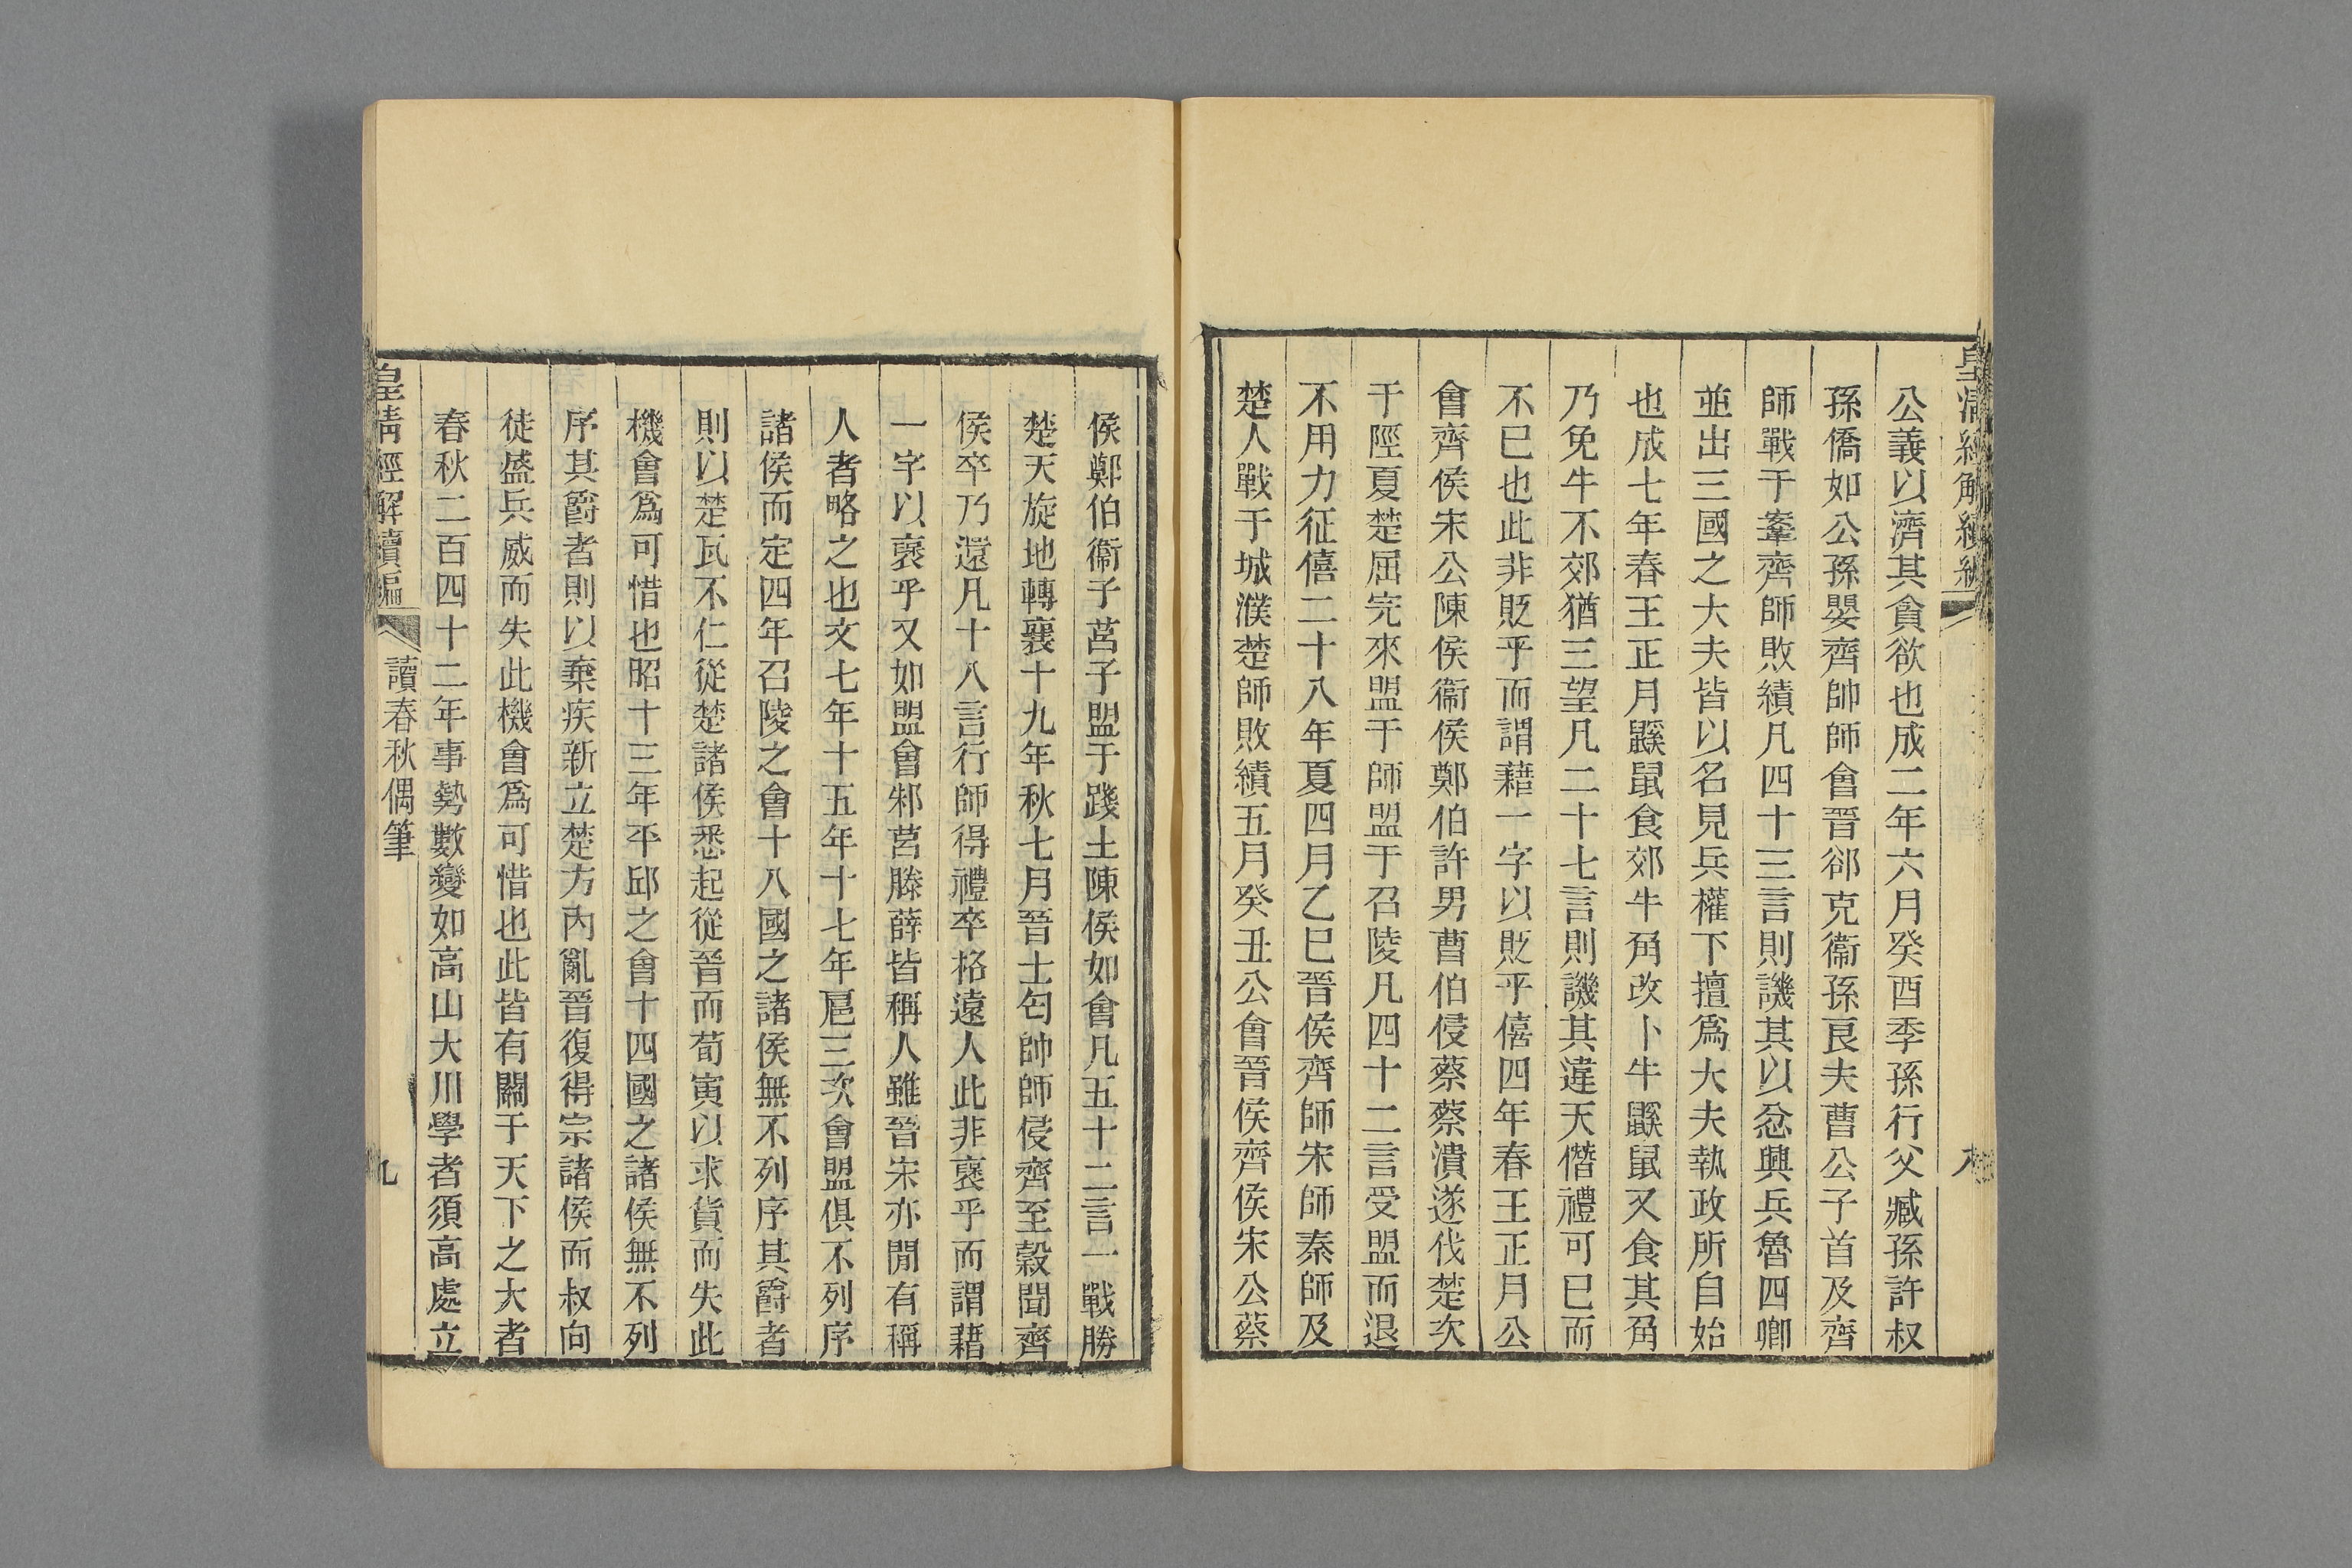 皇清經解續編
八
公義以濟其貪欲也成二年六月癸酉季孫行父臧孫許叔
孫僑如公孫嬰齊帥師會晉郤克衞孫良夫曹公子首及齊
師戰于鞌齊師敗績凡四十三言則譏其以忿興兵魯四卿
並出三國之大夫皆以名見兵權下擅爲大夫執政所自始
也成七年春王正月鼷鼠食郊牛角改卜牛鼷鼠又食其角
乃免牛不郊猶三望凡二十七言則譏其違天僭禮可已而
不已也此非貶乎而謂藉一字以貶乎僖四年春王正月公
會齊侯宋公陳侯衞侯鄭伯許男曹伯侵蔡蔡潰遂伐楚次
于陘夏楚屈完來盟于師盟于召陵凡四十二言受盟而退
不用力征僖二十八年夏四月乙巳晉侯齊師宋師秦師及
楚人戰于城濮楚師敗績五月癸丑公會晉侯齊侯宋公蔡
侯鄭伯衞子莒子盟于踐土陳侯如會凡五十二言一戰勝
楚天旋地轉襄十九年秋七月晉士匄帥師侵齊至榖聞齊
侯卒乃還凡十八言行師得禮卒格遠人此非襃乎而謂藉
一字以襃乎又如盟會邾莒滕薛皆稱人雖晉宋亦閒有稱
人者略之也文七年十五年十七年扈三次會盟俱不列序
諸侯而定四年召陵之會十八國之諸侯無不列序其爵者
則以楚瓦不仁從楚諸侯悉起從晉而荀寅以求貨而失此
機會爲可惜也昭十三年平邱之會十四國之諸侯無不列
序其爵者則以棄疾新立楚方內亂晉復得宗諸侯而叔向
徒盛兵威而失此機會爲可惜也此皆有關于天下之大者
春秋二百四十二年事勢數變如高山大川學者須高處立
皇清經解續編
讀春秋偶筆
九